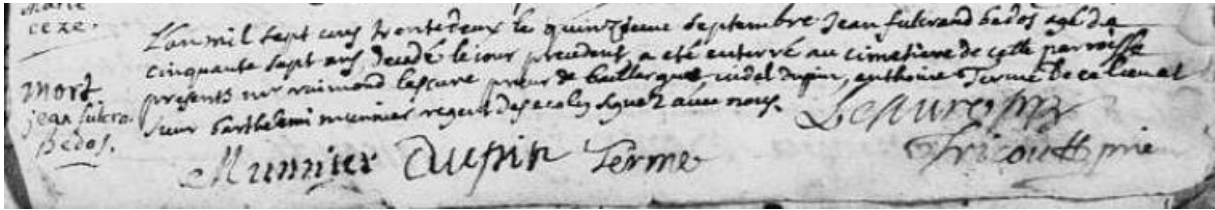 ceze.
L'an mil sept cens trente deux le quinzieme septembre jean fulcrand bedos agé de
cinquante sept ans, decedé le jour precedent, a été enterré au cimetiere de cette parroisse
mort
jean fulcra.
Bedos.
presents mr raimond lescure prieur de vidal dupin, anthoine Terme de ce lieu et
sieur barthelemi munnier regent des ecoles signez avec nous.
Munnier Dupin Terme
Tricout prieu